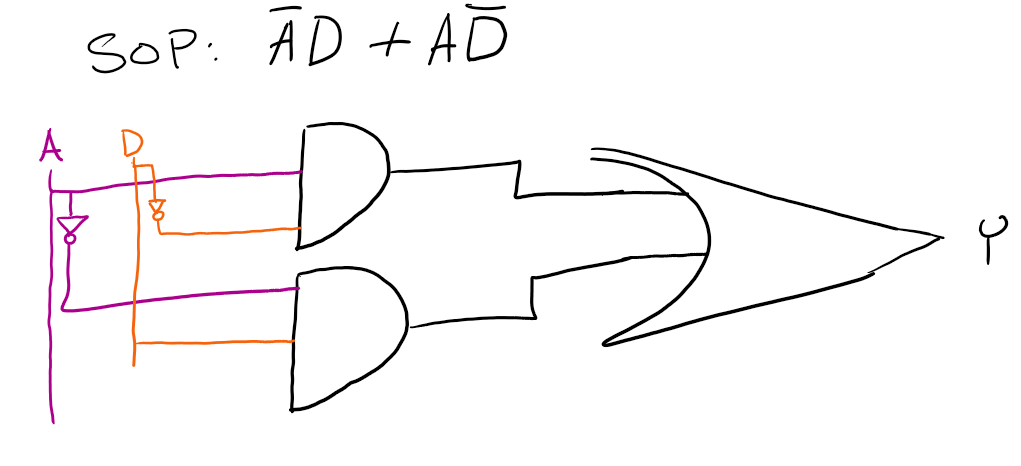 SOP: A̅D + AD̅
A
D
Y